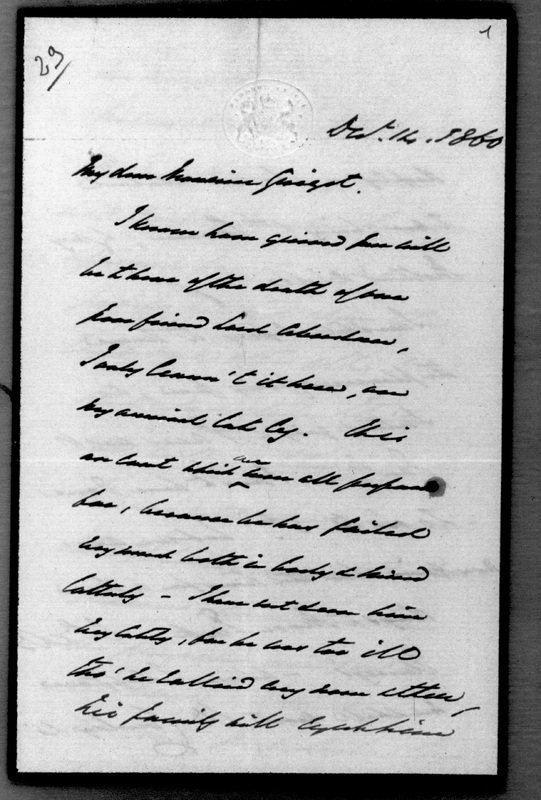 1
29
Dec. 14. 1860
My dear Monsieur Guizot.
I know how grieved you will
be to hear of the death of our
poor friend Lord Aberdeen,
I only learn't it here, on
my arrival last
an event which we were all prepared
for, because he has failed
very much both in body & mind
latterly – I have not seen him
very lately, for he was too ill
tho' he rallied every now & then,
his family will